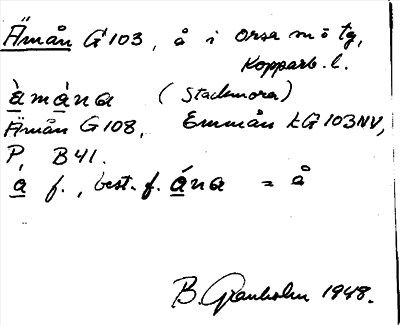 Åmån G 103, å i Orsa m o tg,
Kopparb. l.
àmàna (Stackmora)
Åmån G 108, Emmån LG 103 NV,
P, B 41.
a f., best. f. ána = å
B. Granholm 1948.